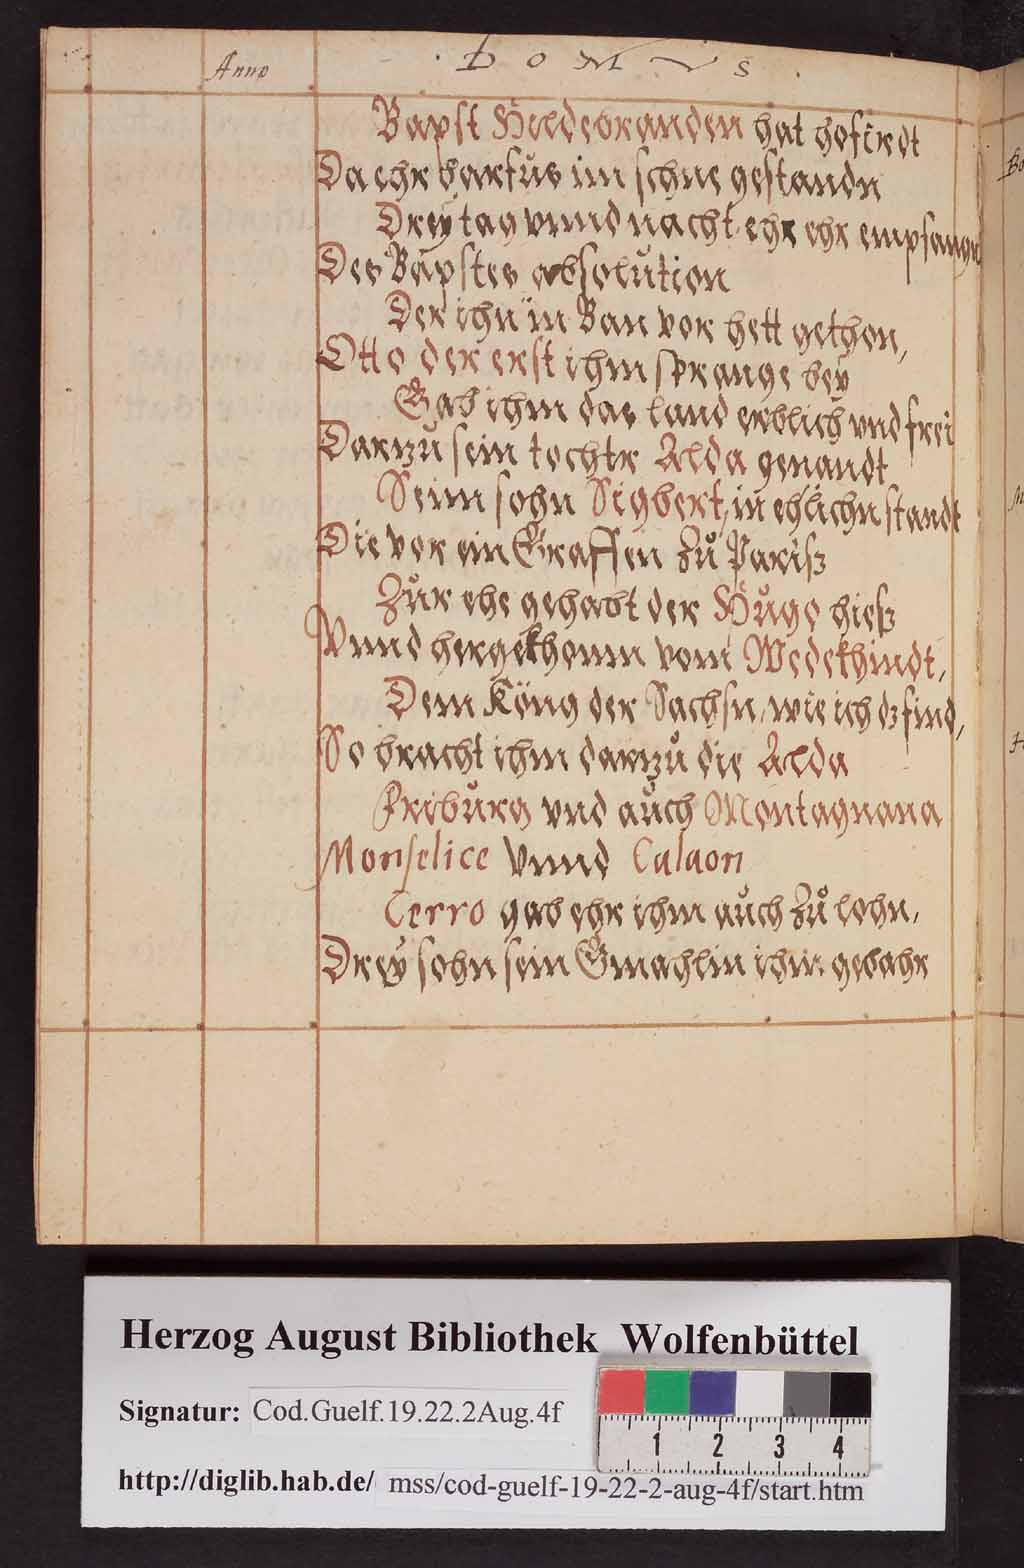 Anno
· D O M V S ·
Bapst Hildebranden hat hofirdt
Da ehr barfůs im schne gestandn
Dreÿ tag vnnd nacht ehr ehr empfangn
Des Bapstes absolůtion
Der ihn in Ban vor hett gethon,
Otto der erst ihm sprange beÿ
Gab ihm das land erblich vnd frei
Darzů sein tochtr Alda genandt
Seim sohn Sigbert, in ehlichn standt
Die vor ein Graffen Zů Parisz
Zůr ehe gehabt der Hůgo hiesz
Vnnd hergekhomm vom Wedekhindt,
Dem Köng der Sachsn, wie ich dz find,
So bracht ihm darzů die Alda
Fribůrg vnd aůch Montagnana
Monselice Vnnd Calaon
Cerro gab ehr ihm aůch Zů lohn,
Dreÿ sohn sein Gmachlin ihm gebahr
Herzog August Bibliothek Wolfenbüttel
Signatur: Cod.Guelf.19.22.2Aug.4f
1 2 3 4
http://diglib.hab.de/ mss/cod-guelf-19-22-2-aug-4f/start.htm